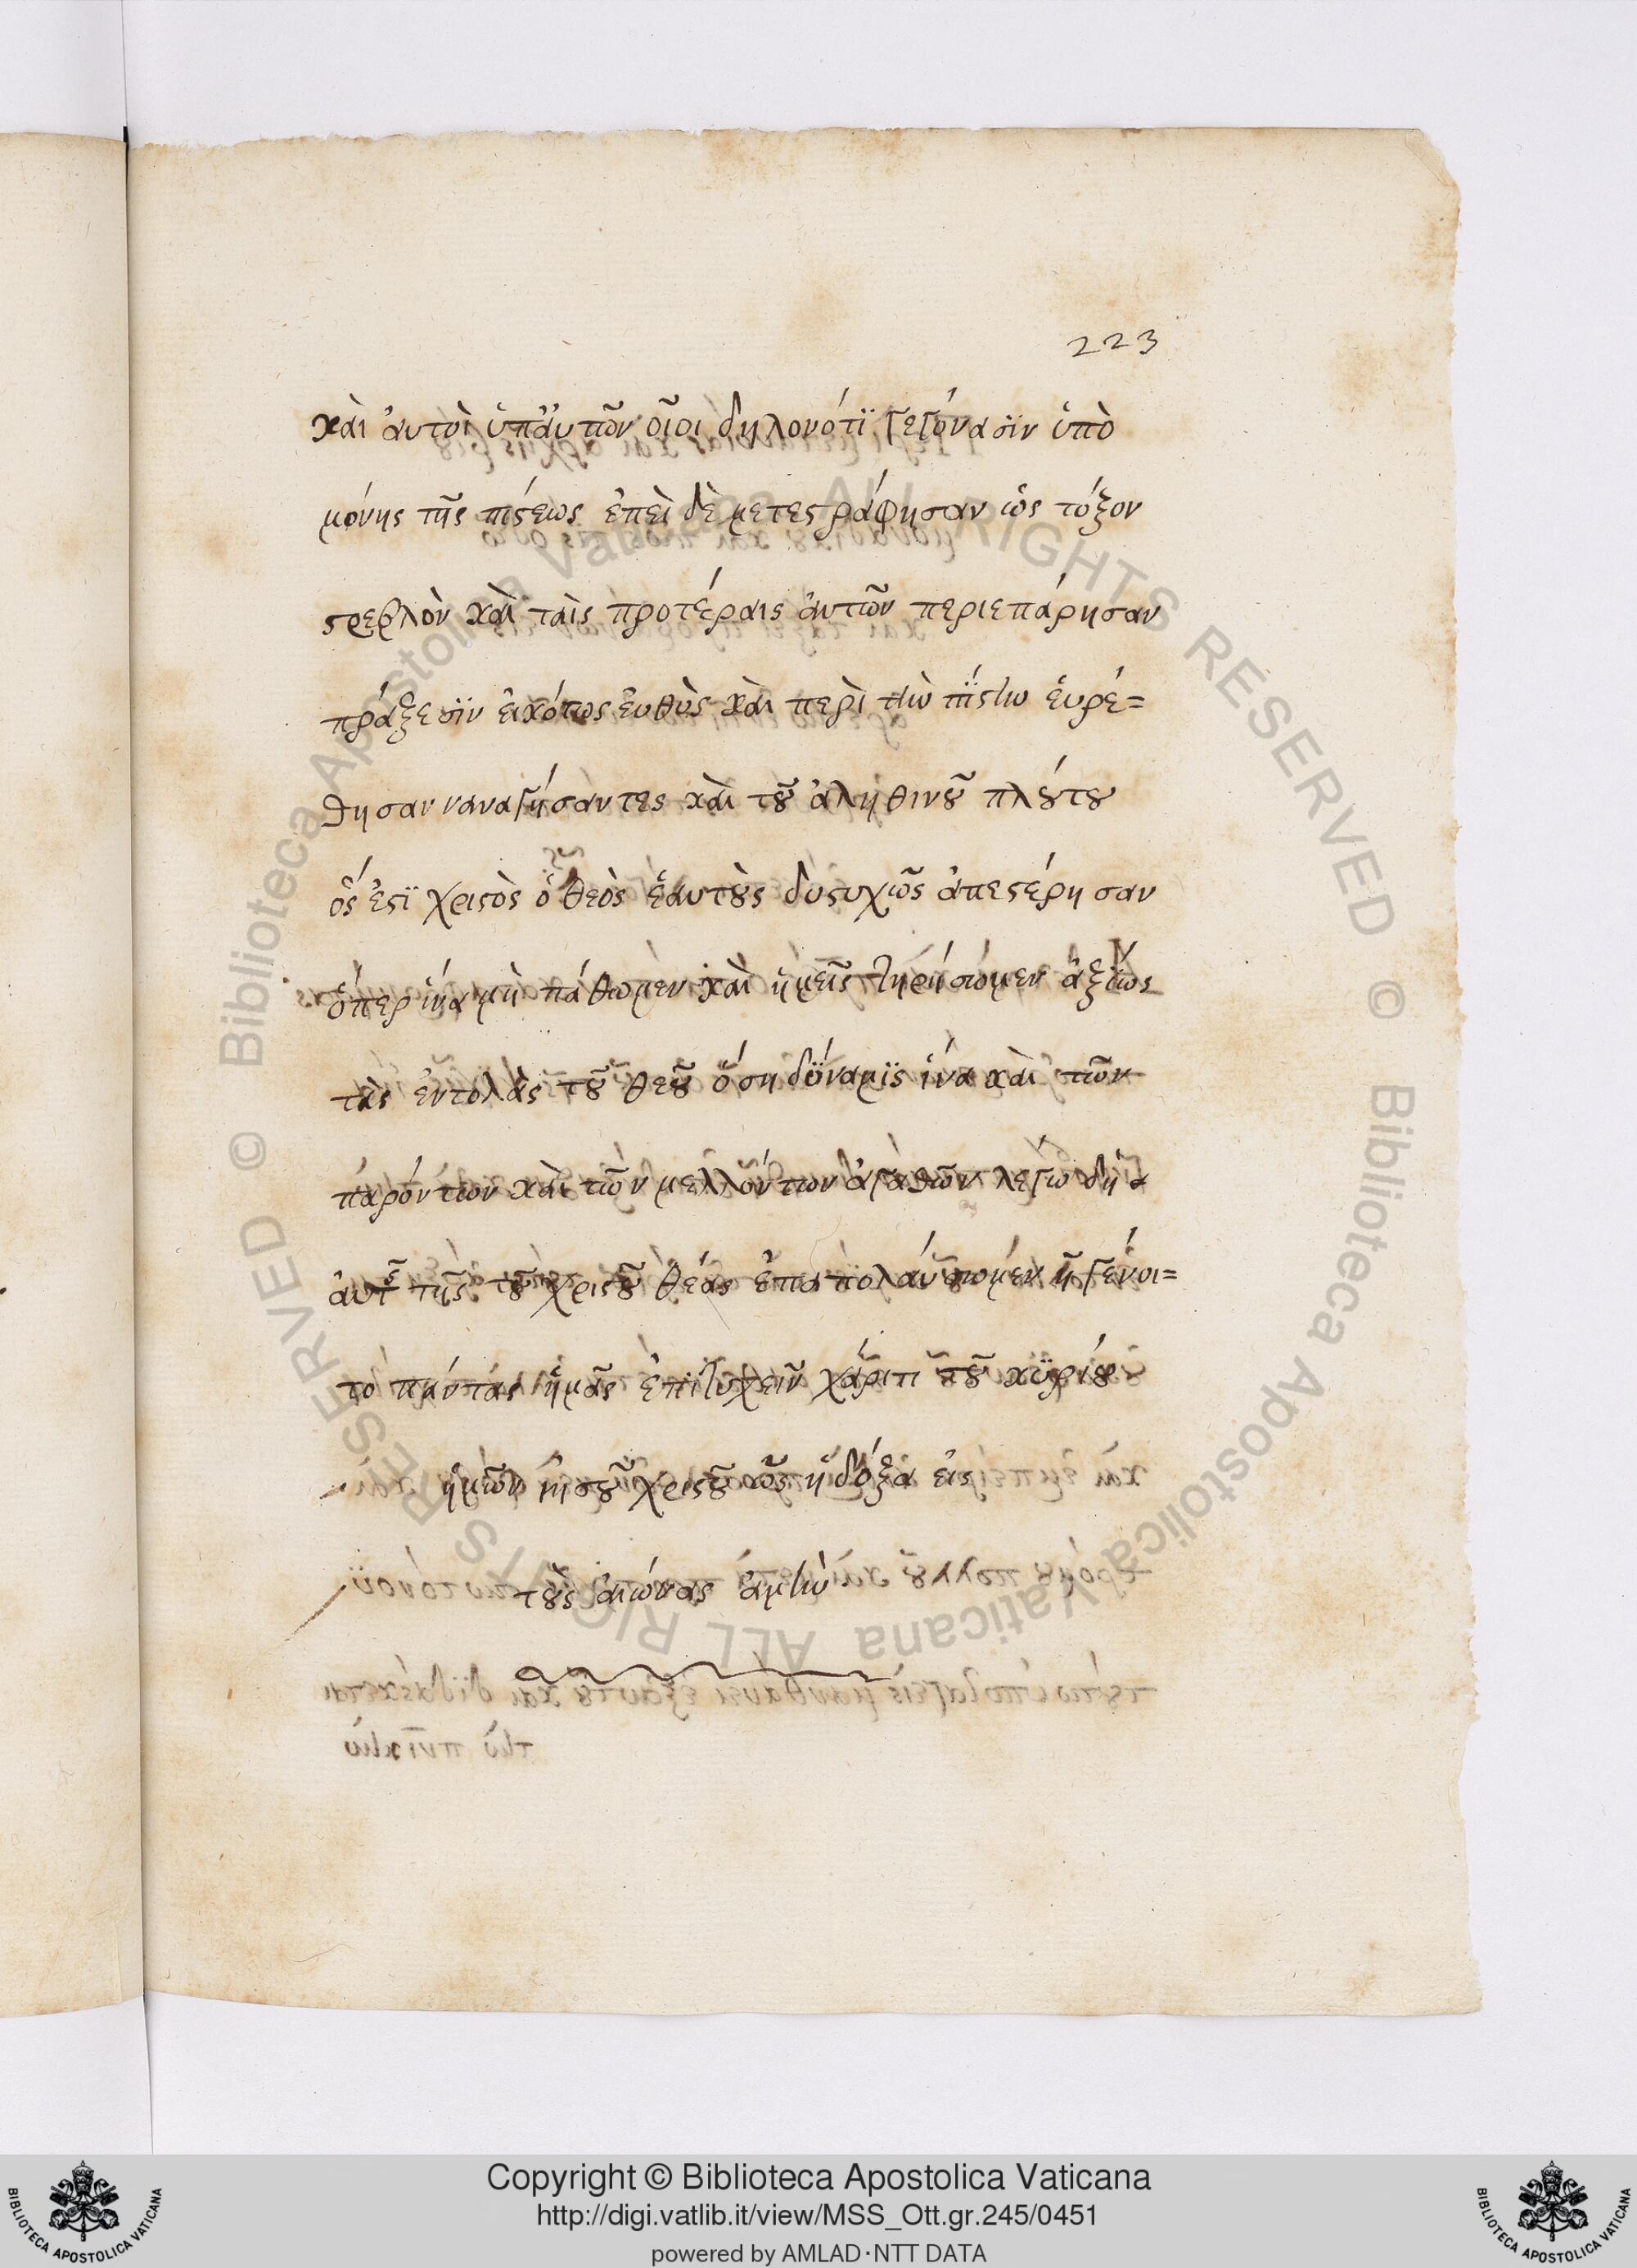 223
καὶ ἀυτοὶ ὑπἀυτῶν οἷοι δηλονότϊ γεγόνασϊν ὑπὸ
μόνης τῆς πίστεως ἐπεὶ δὲ μετεστράφησαν ὡς τόξον
στρεβλὸν καὶ ταῖς προτέραις ἀυτῶν περιεπάρησαν
πράξεσϊν εἰκότως ἐυθὺς καὶ περὶ τὴν πίστιν ἑυρέ=
θησαν ναναγήσαντες καὶ τοῦ ἀληθινοῦ πλούτου
ὅς ἐστϊ χριστὸς ὁ θεὸς ἑαυτοὺς δυστυχῶς ἀπεστέρησαν
ὅπερ ἵνα μὴ πάθωμεν καὶ ἡμεῖς τηρήσωμεν ἀξίως
τὰς ἐντολὰς τοῦ θεοῦ ὅση δύναμϊς ἵνα καὶ τῶν
παρόντων καὶ τῶν μελλόντων ἀγαθῶν λέγω δὴ
ἀυτῆς τῆς τοῦ χριστοῦ θέας ἐπαπολάυσωμεν ἧς γένοι=
το πάντας ἡμᾶς ἐπϊτυχεῖν χάριτι τοῦ κυρίου
ἡμῶν ἰησοῦ χριστοῦ ἡ δόξα εἰς
τοὺς ἀιώνας ἀμήν
Copyright © Biblioteca Apostolica Vaticana
http://digi.vatlib.it/view/MSS_Ott.gr.245/0451
powered by AMLAD·NTT DATA
BIBLIOTECA APOSTOLICA VATICANA
BIBLIOTECA APOSTOLICA VATICANA
© Biblioteca Apostolica Vaticana ALL RIGHTS RESERVED © Biblioteca Apostolica Vaticana ALL RIGHTS RESERVED